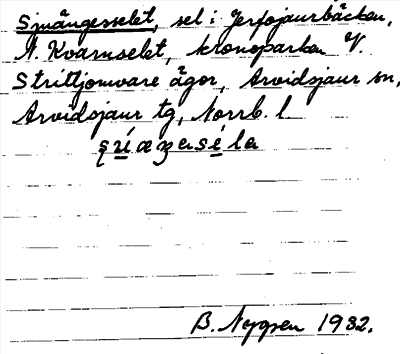 Sjnångesselet, sel i Jerfojaurbäcken,
N. Kvarnselet, kronoparken V.
Strittjomvare ägor, Arvidsjaur sn,
Arvidsjaur tg, Norrb. l.
B. Nygren 1932.